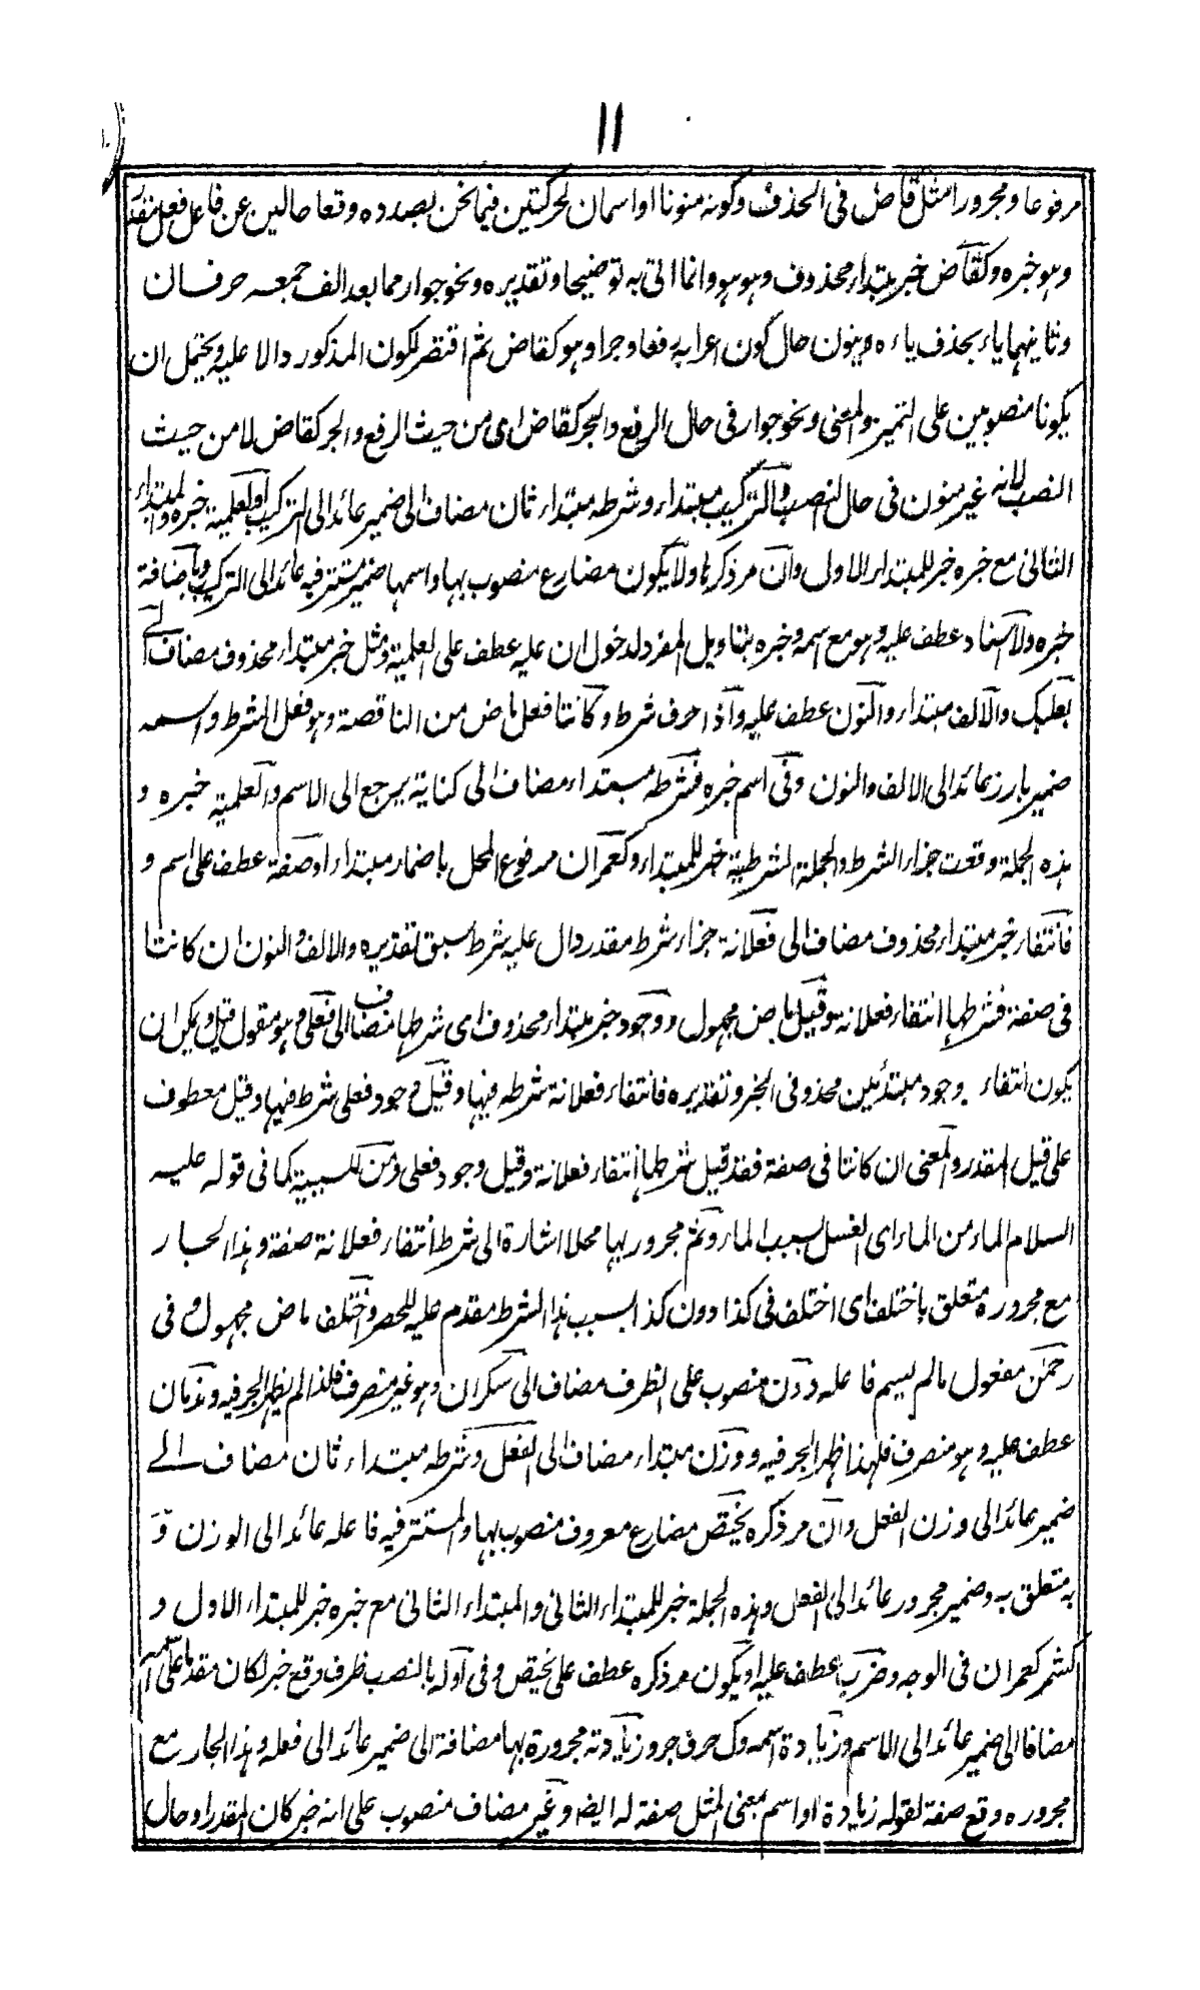 ١١
مرفوعا ومجرورا مثل قاض فى الحذف وكونه منونا او اسمان لحركتين فيما نحن بصدده وقعا حالين عن فاعل فعل
وهو خبره وكقاض خبر مبتداء محذوف وهو هو وانما اتى به توضيحا وتقديره ونحو جوار مما بعد الف جمعه حرفان
وثانيهما ياء بحذف ياءه وينون حال كون اعرابه رفعا وجرا وهو كقاض ثم اقتصر لكون المذكور دالا عليه ويحتمل ان
يكونا منصوبين على التميز والمعنى ونحو جوار فى حال الرفع والجر كقاض اى من حيث الرفع والجر كقاض لا من حيث
النصب لانه غير منون فى حال النصب والتركيب مبتداء وشرطه مبتداء ثان مضاف الى ضمير عائد الى التركيب والعلمية خبره والمبتداء
الثانى مع خبره خبر للمبتداء الاول وان مر ذكرها ولا يكون مضارع منصوب بها واسمها ضمير مستتر فيه عائد الى التركيب وباضافة
خبره ولا اسناد عطف عليه وهو مع اسمه وخبره بتاويل المفرد لدخول ان عليه عطف على العلمية ومثل خبر مبتداء محذوف مضاف الى
بعلبك والالف مبتداء والنون عطف عليه واذا حرف شرط وكانتا فعل ماض من الناقصة وهو فعل الشرط واسمه
ضمير بارز عائد الى الالف والنون وفى اسم خبره فشرطه مبتداء مضاف الى كناية يرجع الى الاسم والعلمية خبره و
هذه الجملة وقعت جزاء الشرط والجملة الشرطية خبر للمبتداء وكعمران مرفوع المحل باضمار مبتداء او صفة عطف على اسم و
فانتفاء خبر مبتداء محذوف مضاف الى فعلانة جزاء شرط مقدر دال عليه شرط سبق تقديره والالف والنون ان كانتا
فى صفة فشرطها انتفاء فعلانه وقيل ماض مجهول ووجود خبر مبتداء محذوف اى شرطها مضاف الى فعلى وهو مقول قيل ويمكن ان
يكون انتفاء ووجود مبتدئين محذوفى الخبر وتقديره فانتفاء فعلانة شرطه فيها وقيل وجود فعلى شرط فيها وقيل معطوف
على قيل المقدر والمعنى ان كانتا فى صفة فقد قيل شرطها انتفاء فعلانة وقيل وجود فعلى ومن للسببية كما فى قوله عليه
السلام الماء من الماء اى الغسل بسبب الماء وثم مجرور بها محلا اشارة الى شرط انتفاء فعلانة صفة وهذا الجار
مع مجروره متعلق باختلف اى اختلف فى كذا دون كذا بسبب هذا الشرط مقدم عليه للحصر واختلف ماض مجهول وفى
رحمن مفعول مالم يسم فاعله ودون منصوب على الظرف مضاف الى سكران وهو غير منصرف فلذا لم يظهر الجر فيه وندمان
عطف عليه وهو منصرف فلهذا ظهر الجر فيه ووزن مبتداء مضاف الى الفعل وشرطه مبتداء ثان مضاف الى
ضمير عائد الى وزن الفعل وان مر ذكره يختص مضارع معروف منصوب بها والمستتر فيه فاعله عائد الى الوزن و
به متعلق به وضمير مجرور عائد الى الفعل وهذه الجملة خبر للمبتداء الثانى والمبتداء الثانى مع خبره خبر للمبتداء الاول و
كشمر كعمران فى الوجه وضرب عطف عليه او يكون مر ذكره عطف على يختص وفى اوله بالنصب ظرف وقع خبر لكان مقدما على اسمه
مضافا الى ضمير عائد الى الاسم وزيادة اسمه وك حرف جر وزيادته مجرورة بها مضافة الى ضمير عائد الى فعله وهذا الجار مع
مجروره وقع صفة لقوله زيادة او اسم بمعنى المثل صفة له ايضا وغير مضاف منصوب على انه خبر كان المقدر او حال